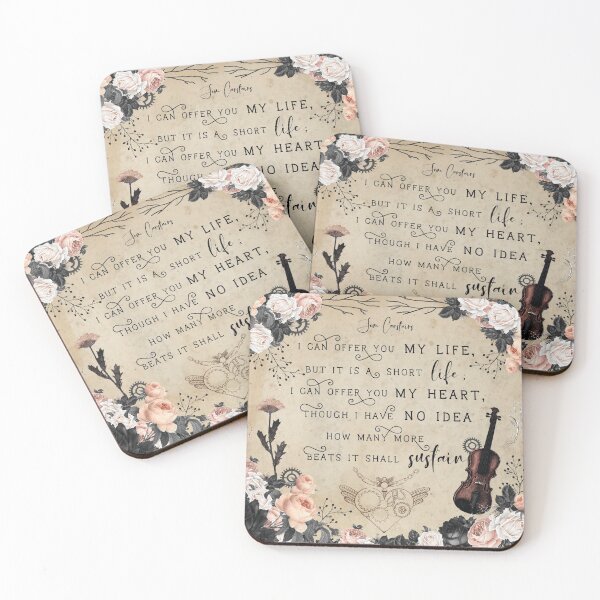 Jem Carstairs
I CAN OFFER YOU MY LIFE,
BUT IT IS A SHORT life;
I CAN OFFER YOU MY HEART,
THOUGH I HAVE NO IDEA
Jem Carstairs
I CAN OFFER YOU MY LIFE,
BUT IT IS A SHORT life;
I CAN OFFER YOU MY HEART,
THOUGH I HAVE NO IDEA
HOW MANY MORE
BEATS IT SHALL sustain
Jem Carstairs
I CAN OFFER YOU MY LIFE,
BUT IT IS A SHORT life;
I CAN OFFER YOU MY HEART,
THOUGH I HAVE NO IDEA
HOW MANY MORE
BEATS IT SHALL sustain
Jem Carstairs
I CAN OFFER YOU MY LIFE,
BUT IT IS A SHORT life;
I CAN OFFER YOU MY HEART,
THOUGH I HAVE NO IDEA
HOW MANY MORE
BEATS IT SHALL sustain